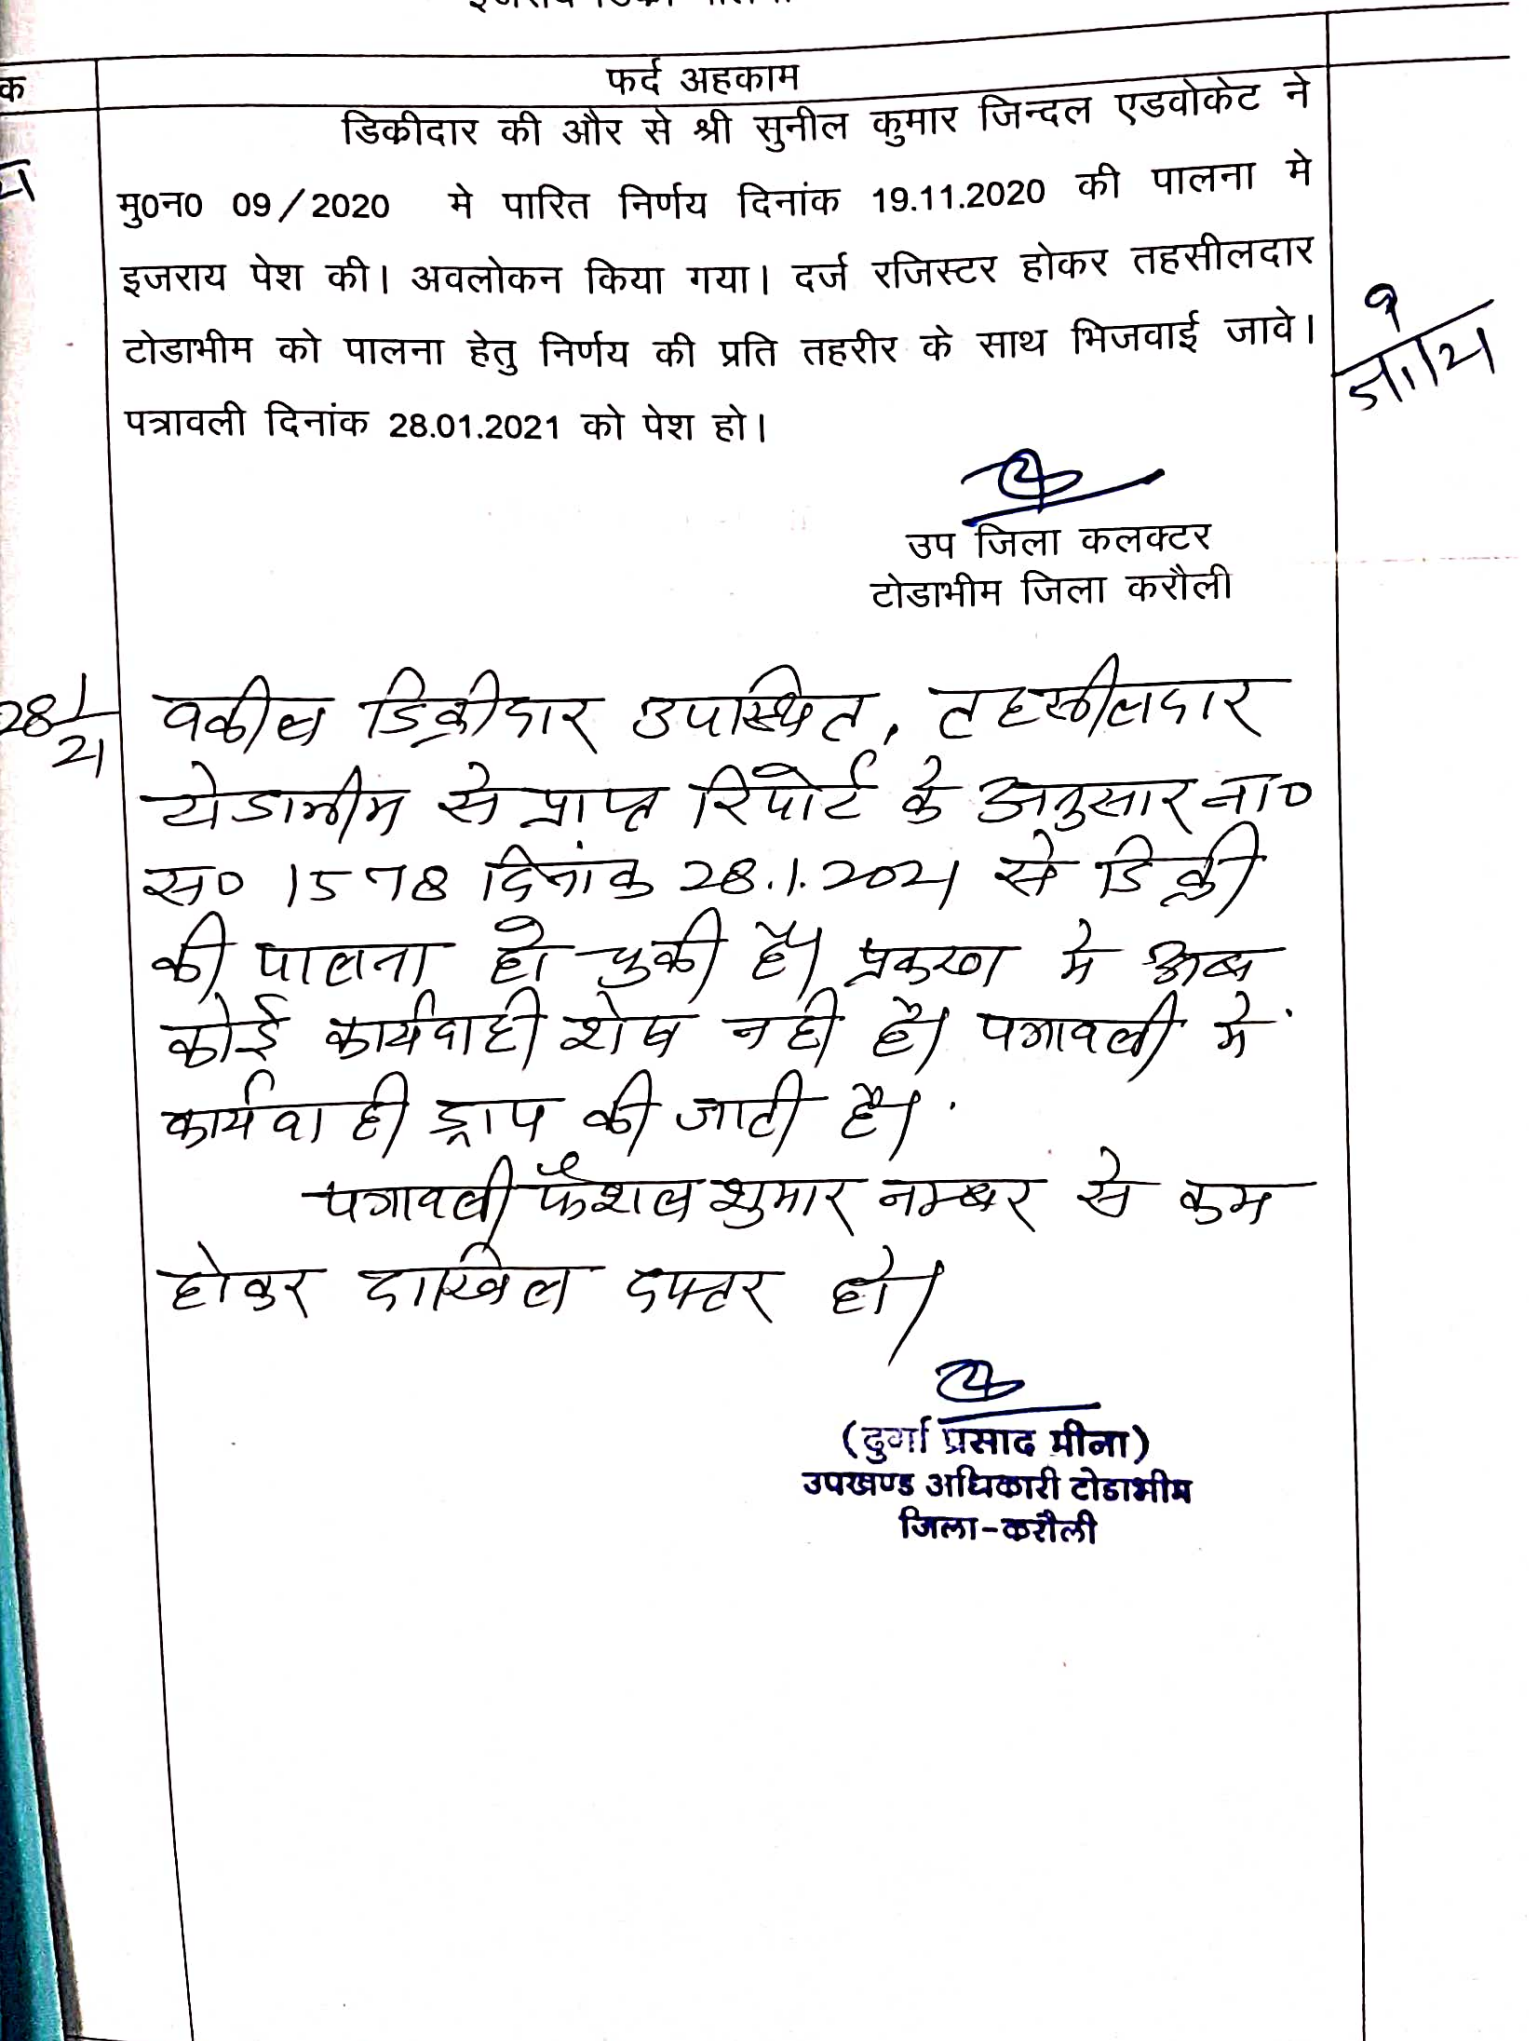 क
फर्द अहकाम
डिकीदार की और से श्री सुनील कुमार जिन्दल एडवोकेट ने
मु0न0 09/2020 मे पारित निर्णय दिनांक 19.11.2020 की पालना मे
इजराय पेश की। अवलोकन किया गया। दर्ज रजिस्टर होकर तहसीलदार
टोडाभीम को पालना हेतु निर्णय की प्रति तहरीर के साथ भिजवाई जावे।
पत्रावली दिनांक 28.01.2021 को पेश हो।
उप जिला कलक्टर
टोडाभीम जिला करौली
28/1/21
वकील डिक्रीदार उपस्थित, तहसीलदार
टोडाभीम से प्राप्त रिपोर्ट के अनुसार ना0
स0 1578 दिनांक 28.1.2021 से डिक्री
की पालना हो चुकी है। प्रकरण मे अब
कोई कार्यवाही शेष नही है। पत्रावली में
कार्यवाही ड्राप की जाती है।
पत्रावली फैशल शुमार नम्बर से कम
होकर दाखिल दफ्तर हो।
(दुर्गा प्रसाद मीना)
उपखण्ड अधिकारी टोडाभीम
जिला-करौली